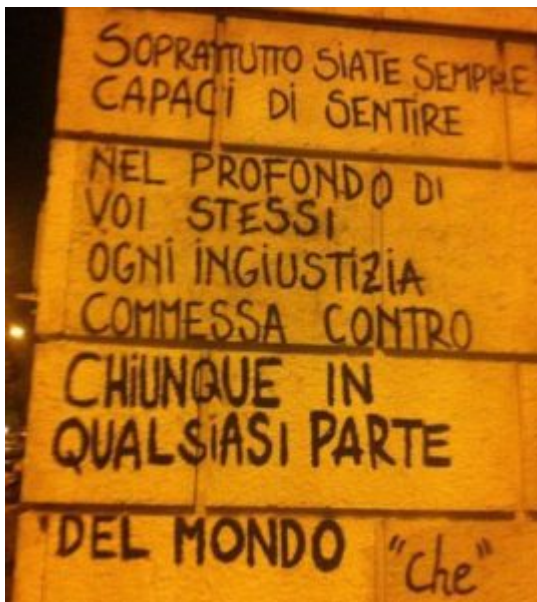 SOPRATTUTTO SIATE SEMPRE
CAPACI DI SENTIRE
NEL PROFONDO DI
VOI STESSI
OGNI INGIUSTIZIA
COMMESSA CONTRO
CHIUNQUE IN
QUALSIASI PARTE
DEL MONDO
"Che"